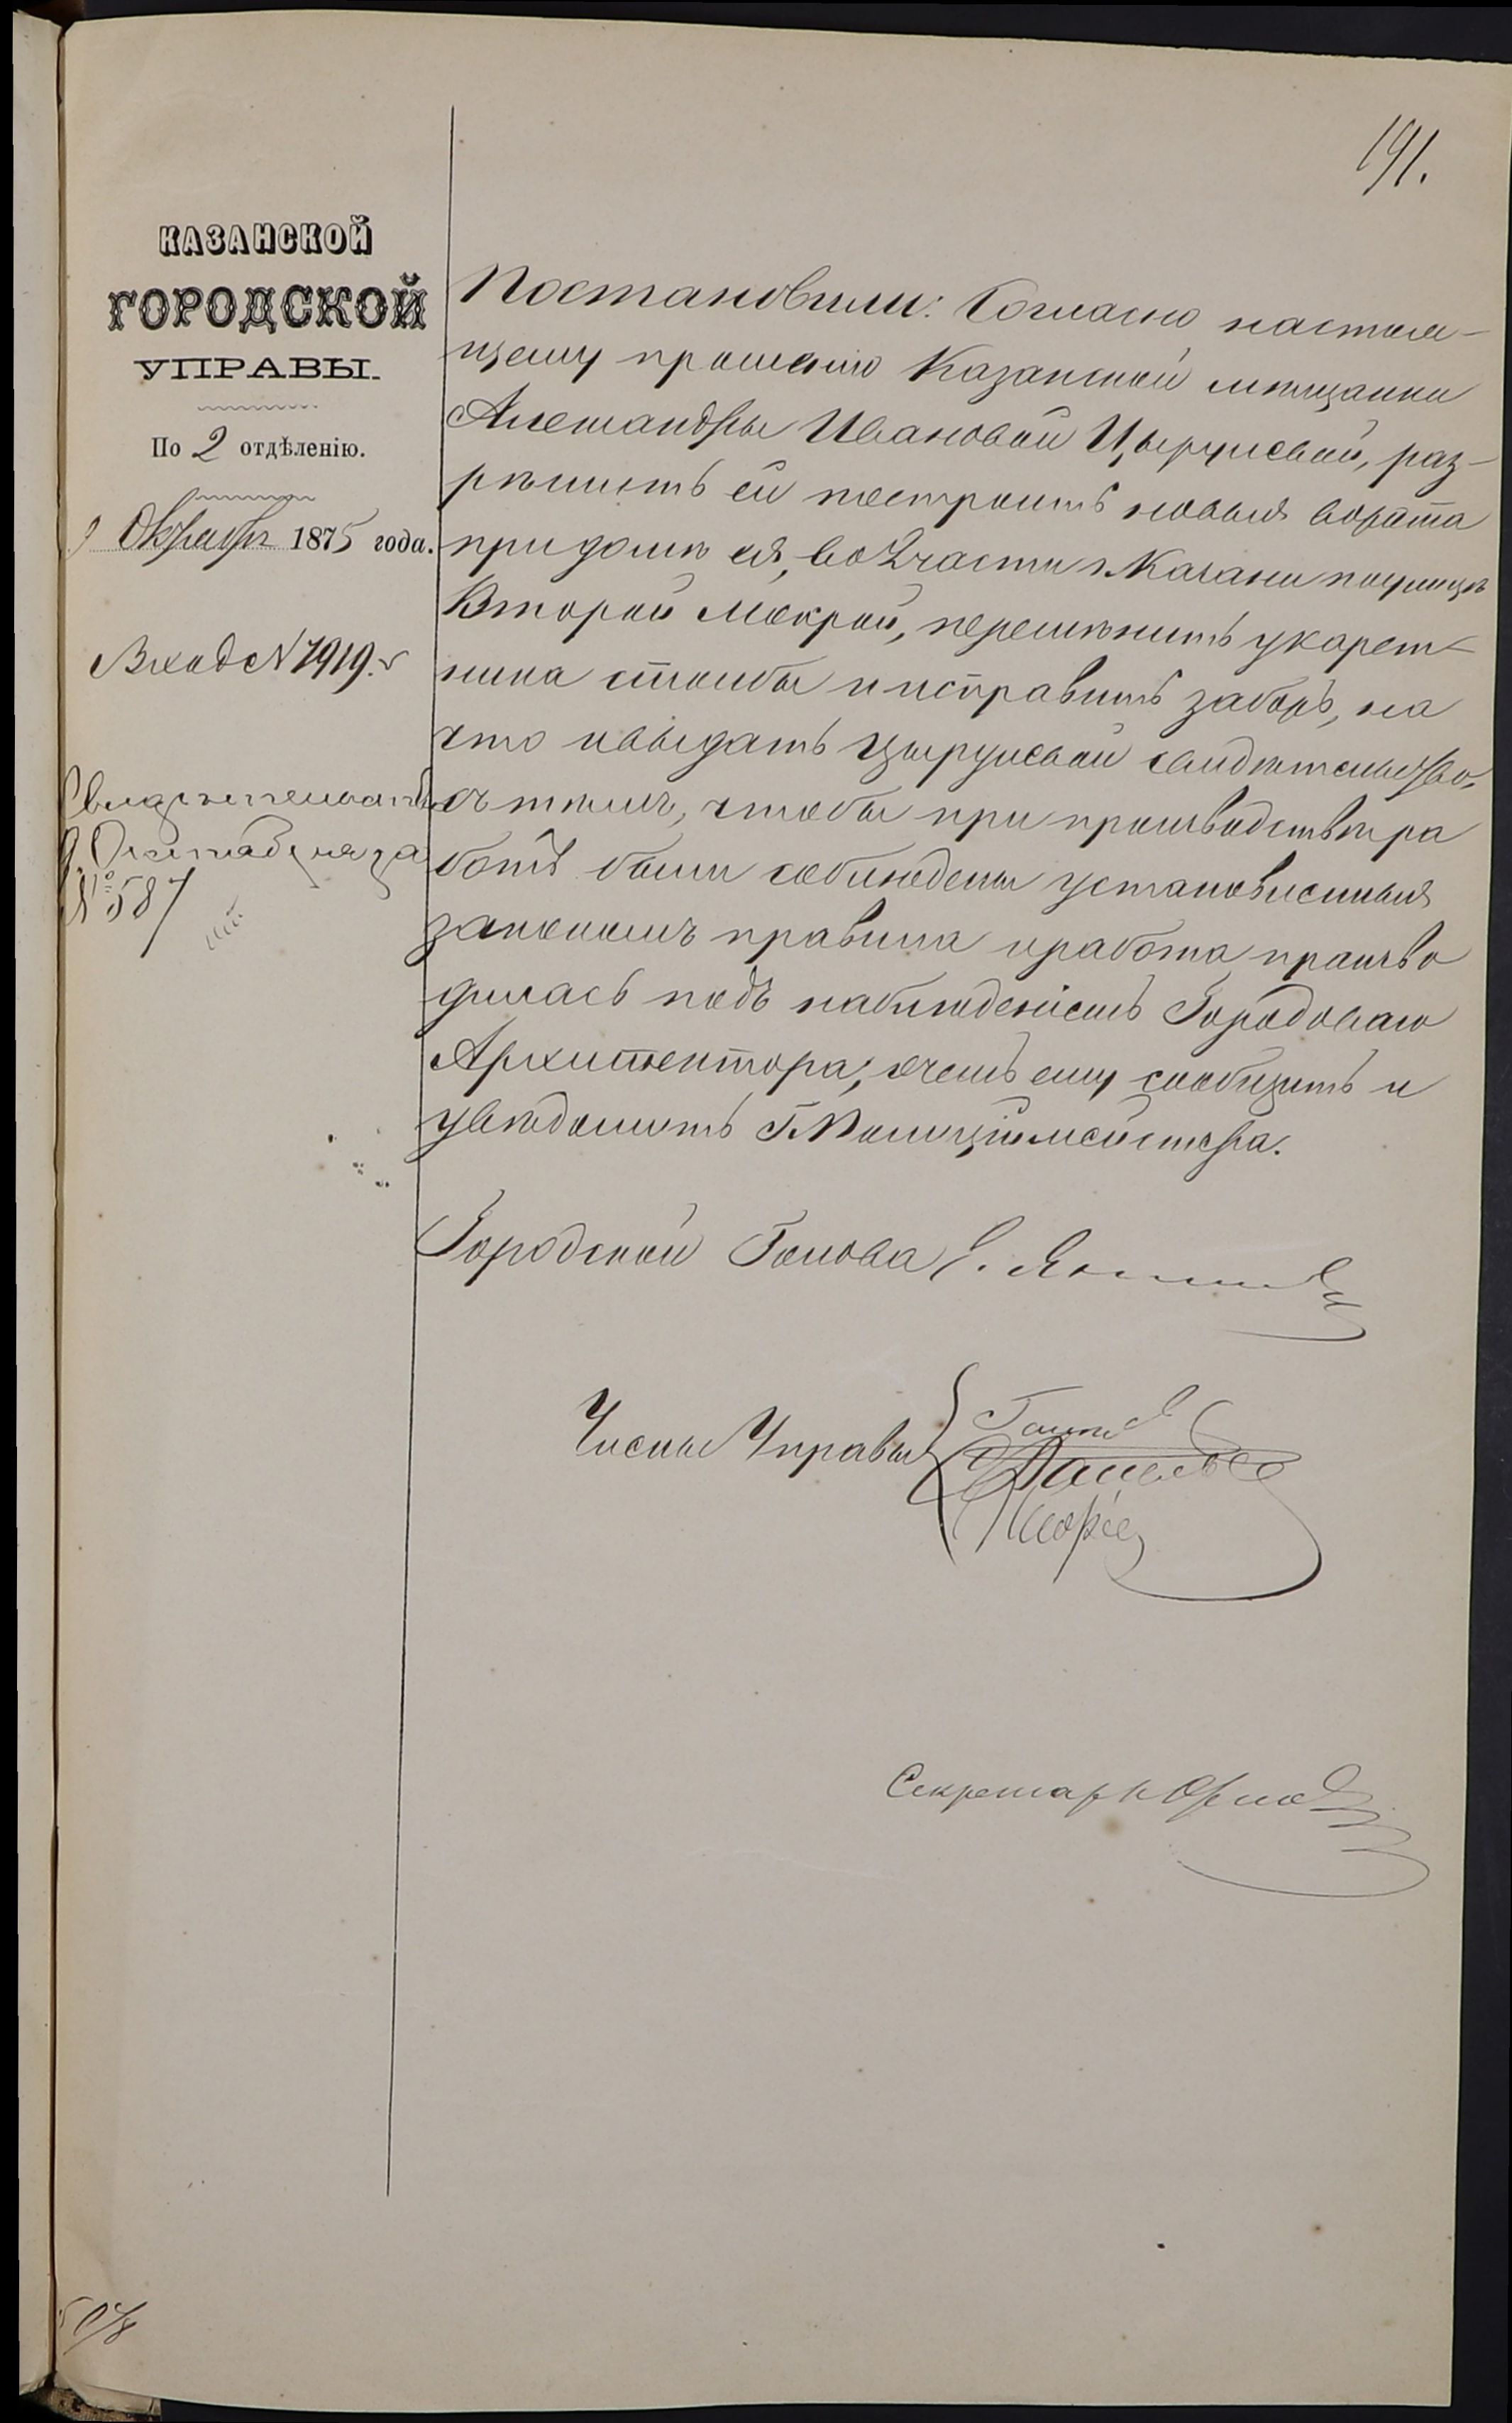 191.
КАЗАНСКОЙ
ГОРОДСКОЙ
УПРАВЫ.
По 2 отдѣленію.
9 Октября 1875 года.
Вход № 7919.
Свидѣтельство
9 Октября за
№ 587
Постановили: Согласно настоя-
щему прошенію Казанской мѣщанки
Александры Ивановой Цырульевой, раз-
рѣшить ей построить новыя ворота
при домѣ ея, во 2 части г. Казани по улицѣ
Второй Мокрой, перемѣнить у карет-
ника столбы и исправить заборъ, на
что и выдать Цырульевой свидѣтельство,
съ тѣмъ, чтобы при производствѣ ра
ботъ были соблюдены установленныя
закономъ правила и работа произво
дилась подъ наблюденіемъ Городоваго
Архитектора, о чемъ ему сообщить и
увѣдомить Г. Полиціймейстера.
Городской Голова
Члены Управы
Секретарь Орлов